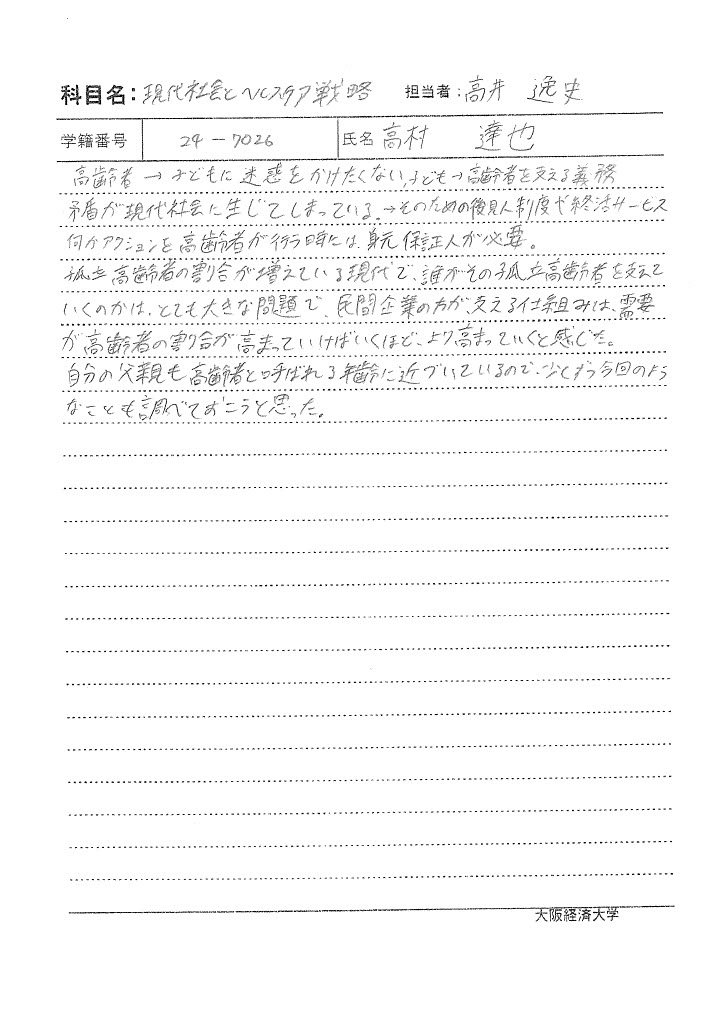 科目名:現代社会とヘルスケア戦略 担当者:高井 逸史
学籍番号 24-7026 氏名 高村 達也
高齢者→子どもに迷惑をかけたくない,子ども→高齢者を支える義務
矛盾が現代社会に生じてしまっている。→そのための後見人制度や終活サービス
何かアクションを高齢者が行う時には、身元保証人が必要。
孤立高齢者の割合が増えている現代で、誰がその孤立高齢者を支えて
いくのかは、とても大きな問題で、民間企業の方が支える仕組みは、需要
が高齢者の割合が高まっていけばいくほど、より高まっていくと感じた。
自分の父親も高齢者と呼ばれる年齢に近づいているので、少しずつ今回のよう
なことも調べておこうと思った。
大阪経済大学